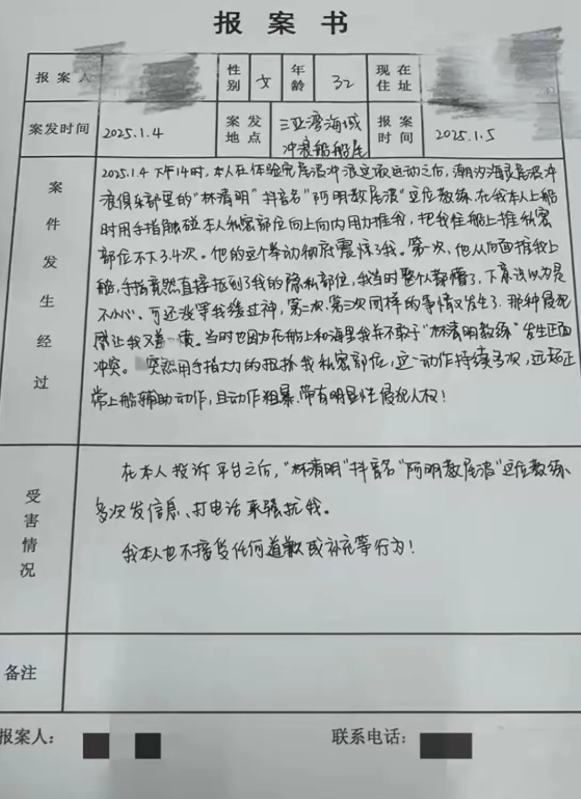 报案书
报案人 性别 女 年龄 32 现在住址
案发时间 2025.1.4 案发地点 三亚湾海域冲浪船船尾 报案时间 2025.1.5
案件发生经过
2025.1.4 下午14时,本人在体验完尾波冲浪这项运动之后,潮汐海灵尾波冲
浪俱乐部里的“林清明”抖音名“阿明教尾波”这位教练,在我本人上船
时用手指触碰本人私密部位向上向内用力推我,把我往船上推私密
部位不下3.4次。他的这个举动彻底震惊了我。第一次,他从后面推我上
船,手指竟然直接抵到了我的隐私部位,我当时整个人都懵了,下意识以为是
不小心。可还没等我缓过神,第二次、第三次同样的事情又发生了.那种侵犯
感让我又羞 愤。当时也因为在船上和海里我并不敢于“林清明教练”发生正面
冲突。 突然用手指大力的 我私密部位,这一动作持续多次,远超正
常上船辅助动作,且动作粗暴、带有明显性侵犯人权!
受害情况
在本人投诉平台之后,“林清明”抖音名“阿明教尾波”这位教练、
多次发信息、打电话来骚扰我。
我本人也不接受任何道歉或补充等行为!
备注
报案人: 联系电话: